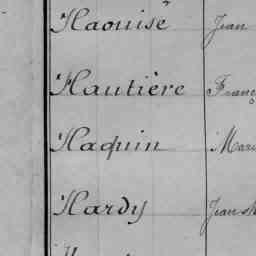 Haouisé Jean
Hautière Franç
Haquin Mari
Hardy Jean M